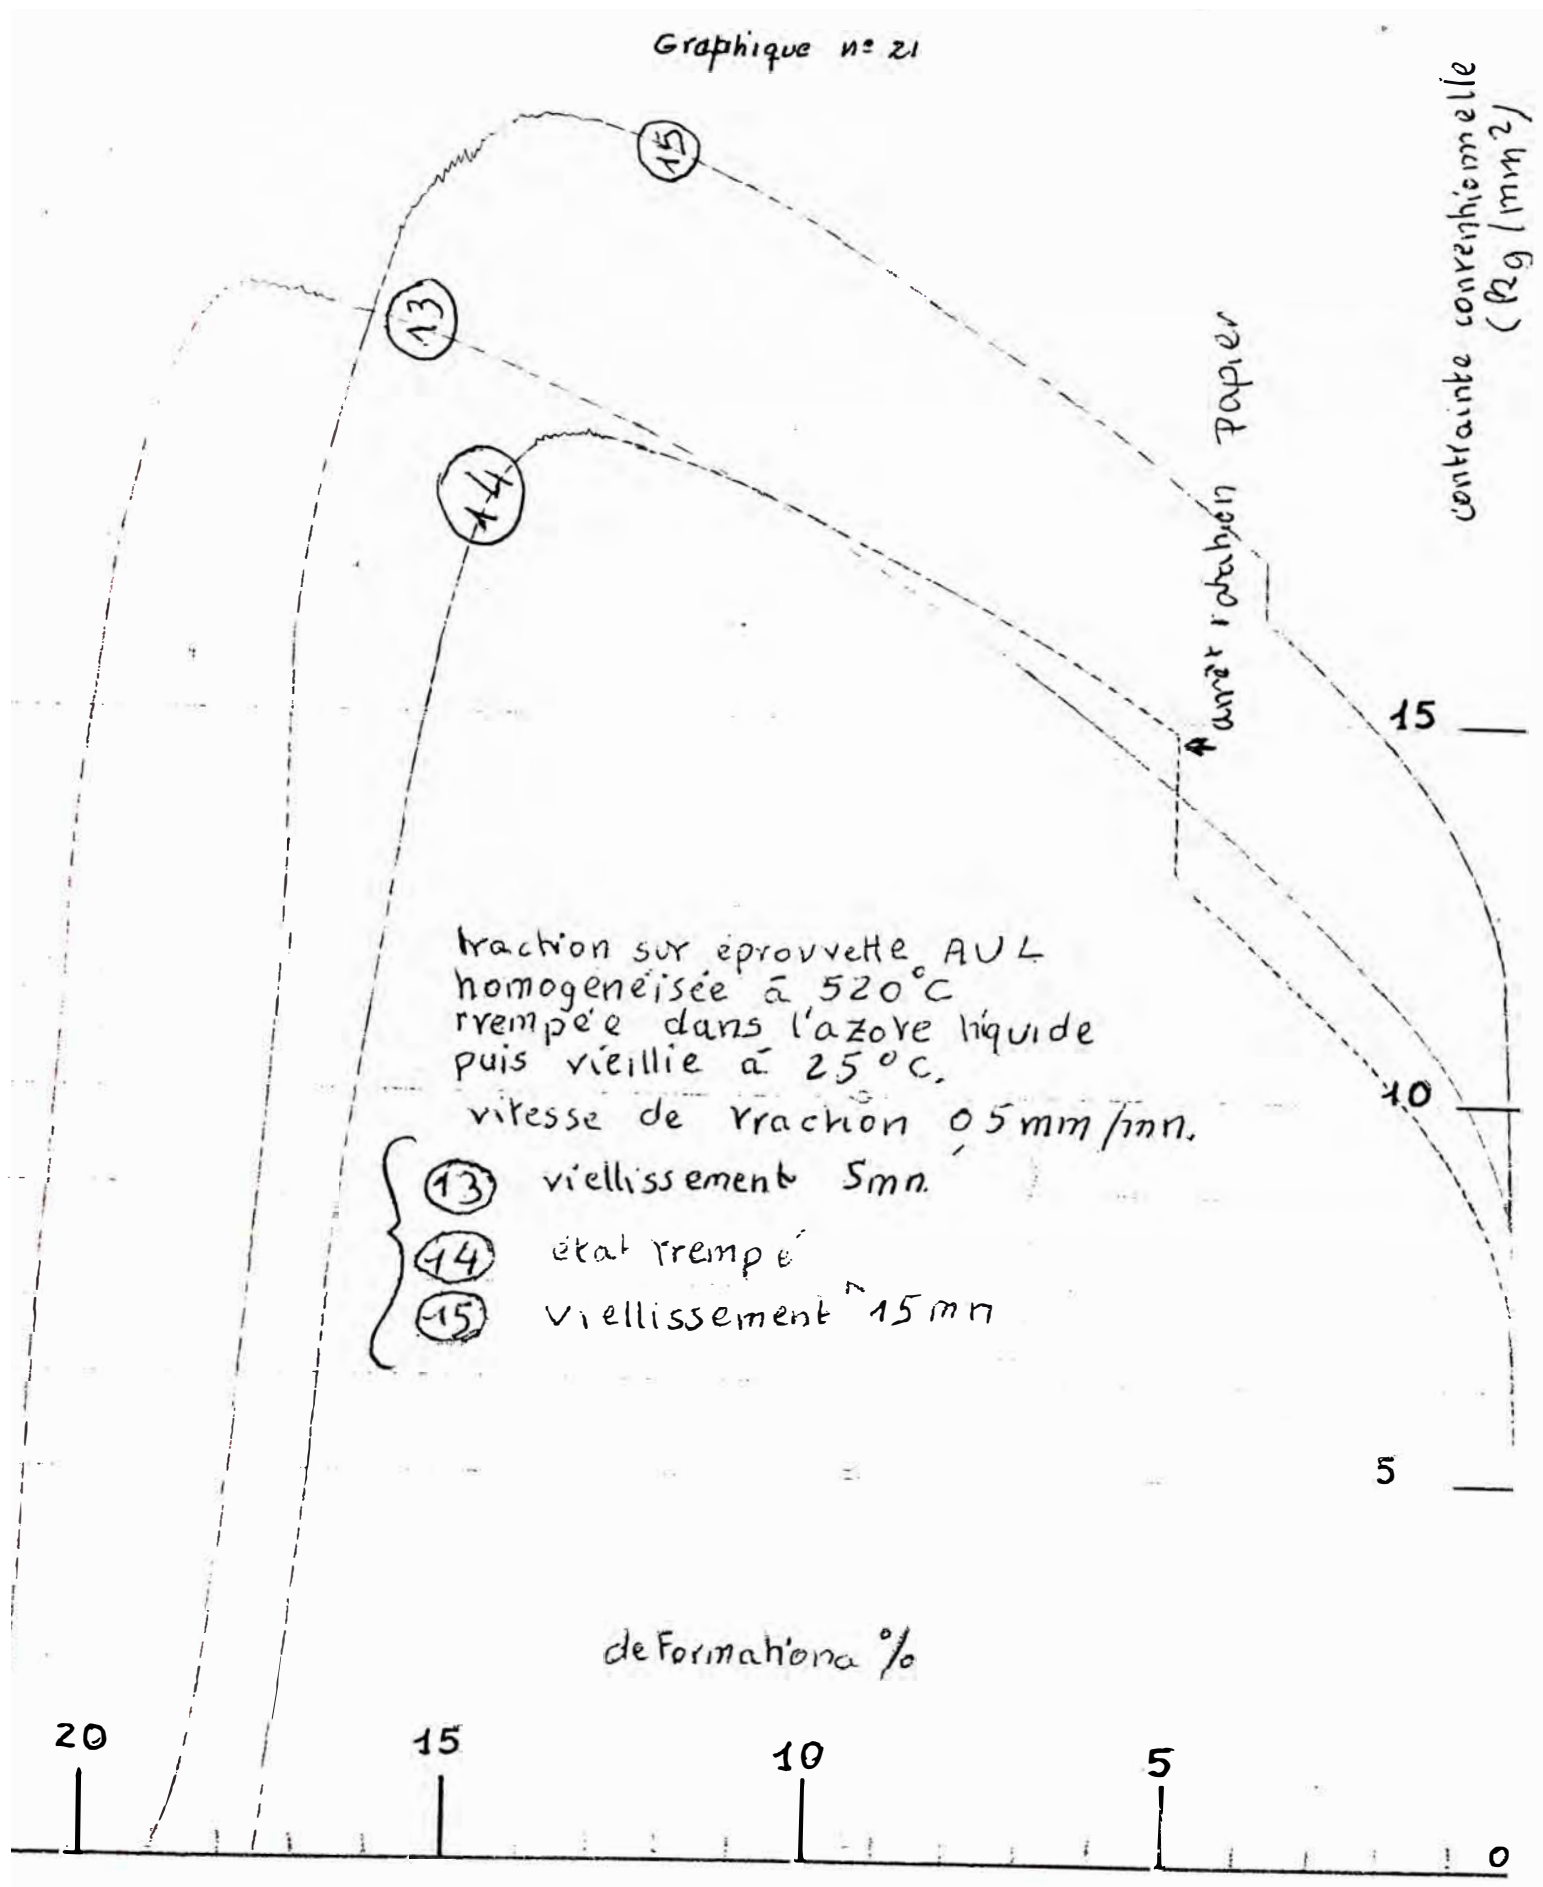 Graphique nº 21
15
13
14
contrainte conventionnelle
(Kg/mm2)
arrêt 1 cahen Papier
15
traction sur éprouvette AU4
homogénéisée à 520°C
trempée dans l'azote liquide
puis vieillie à 25°C.
10
vitesse de traction 0,5mm/mn.
13 viellissement 5mn.
14 état trempé
15 viellissement 15mn
5
deformationa %
20 15 10 5
0